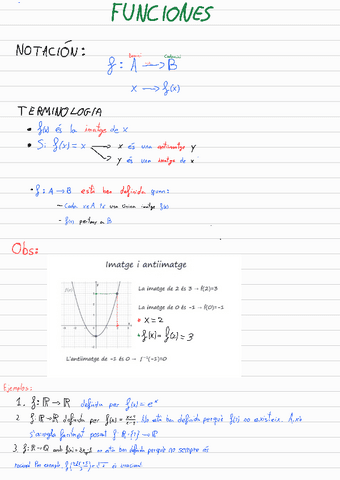 FUNCIONES
NOTACIÓN:
Domini Codomini
f: A → B
x → f(x)
TERMINOLOGIA
• f(x) és la imatge de x
• Si f(x) = x → x és una antiimatge y
→ y és una imatge de x
• f: A → B està ben definida quan:
– Cada x ∈ A té una única imatge f(x)
– f(x) pertany a B
Obs:
Imatge i antiimatge
La imatge de 2 és 3 → f(2)=3
La imatge de 0 és -1 → f(0)=-1
• x = 2
• f(x) = f(2) = 3
L'antiimatge de -1 és 0 → f⁻¹(-1)=0
Exemples:
1. f: ℝ → ℝ definida per f(x) = eˣ
2. f: ℝ → ℝ definida per f(x) = No està ben definida perquè f(1) no existeix. Això
s'arregla fàcilment posant f: ℝ-{1} → ℝ
3. f: ℝ → ℚ amb f(x) = no està ben definida perquè no sempre és
racional. Per exemple, és irracional